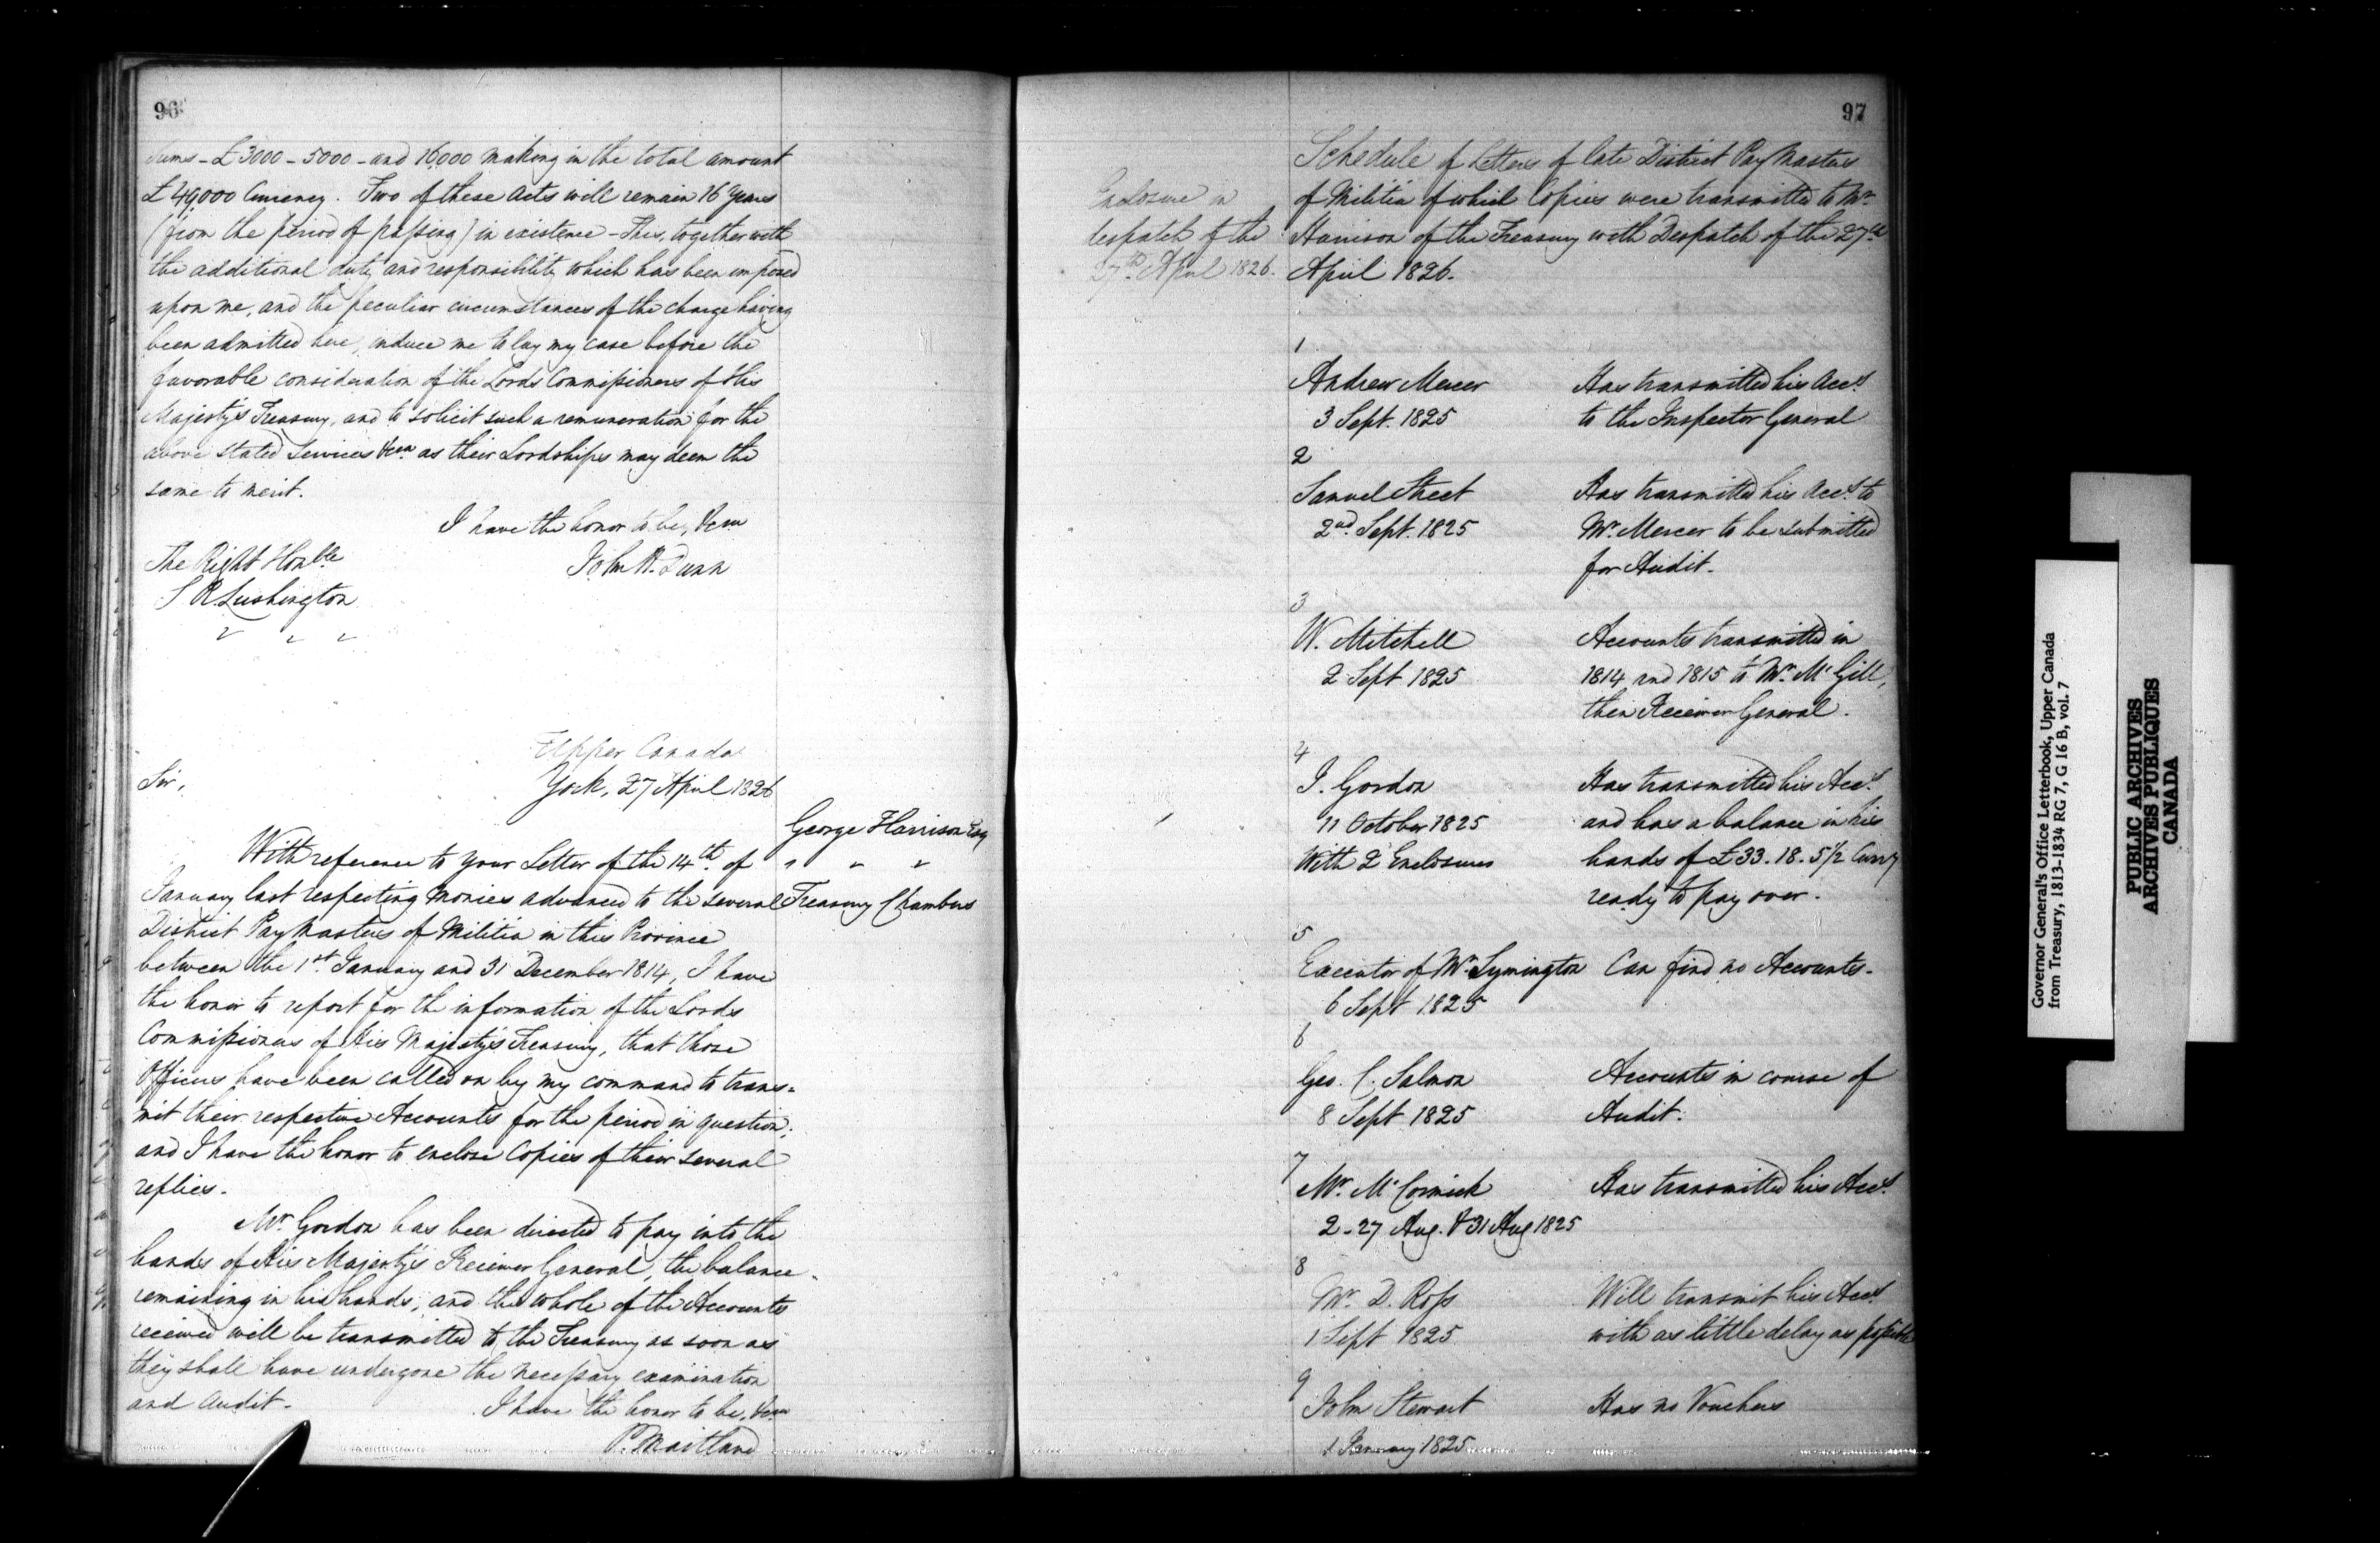 96
Sums - £3000 - 5000 - and 16000 making in the total amount
£49,000 Currency. Two of these Acts will remain 16 Years
(from the period of passing) in existence - This, together with
the additional duty and responsibility which has been imposed
upon me, and the peculiar circumstances of the charge having
been admitted here, induce me to lay my case before the
favorable consideration of the Lords Commissioners of His
Majesty's Treasury, and to solicit such a remuneration for the
above stated Services as their Lordships may deem the
same to merit.
I have the honor to be, &c
The Right Honble
John H. Dunn
S R. Lushington
" " "
Upper Canada
Sir,
York, 27 April 1826
George Harrison Esq
With reference to your Letter of the 14th. of
" " "
January last respecting Monies advanced to the several
Treasury Chambers
District Pay Masters of Militia in this Province
between the 1st. January and 31 December 1814, I have
the honor to report for the information of the Lords
Commissioners of His Majesty's Treasury, that those
Officers have been called on by my command to trans=
mit their respective Accounts for the period in question;
and I have the honor to enclose Copies of their several
replies.
Mr. Gordon has been directed to pay into the
hands of His Majesty's Receiver General, the balance
remaining in his hands, and the whole of the Accounts
received will be transmitted to the Treasury as soon as
they shall have undergone the necessary examination
and Audit.
I have the honor to be, &c
P. Maitland
97
Enclosure in
despatch of the
27th. April 1826.
Schedule of Letters of late District Pay Masters
of Militia of which Copies were transmitted to Mr.
Harrison of the Treasury with Despatch of the 27th
April 1826.
1
Andrew Mercer Has transmitted his Accts.
3 Sept. 1825 to the Inspector General
2
Samuel Street Has transmitted his Accts. to
2nd. Sept. 1825 Mr. Mercer to be submitted
for Audit.
3
W. Mitchell Accounts transmitted in
2 Sept 1825 1814 and 1815 to Mr. McGill,
then Receiver General.
4
J. Gordon Has transmitted his Accts.
11 October 1825 and has a balance in his
With 2 Enclosures hands of £33. 18. 5 1/2 Curry
ready to pay over.
5
Executor of Mr. Symington Can find no Accounts.
6 Sept 1825
6
Geo. C. Salmon Accounts in course of
8 Sept 1825 Audit.
7
Mr. McCormick Has transmitted his Accts.
2 - 27 Aug. & 31 Aug 1825
8
Mr. D. Ross Will transmit his Accts.
1 Sept 1825 with as little delay as possible
9
John Stewart Has no Vouchers
1 January 1825
Governor General's Office Letterbook, Upper Canada
from Treasury, 1813-1834 RG 7, G 16 B, vol. 7
PUBLIC ARCHIVES
ARCHIVES PUBLIQUES
CANADA